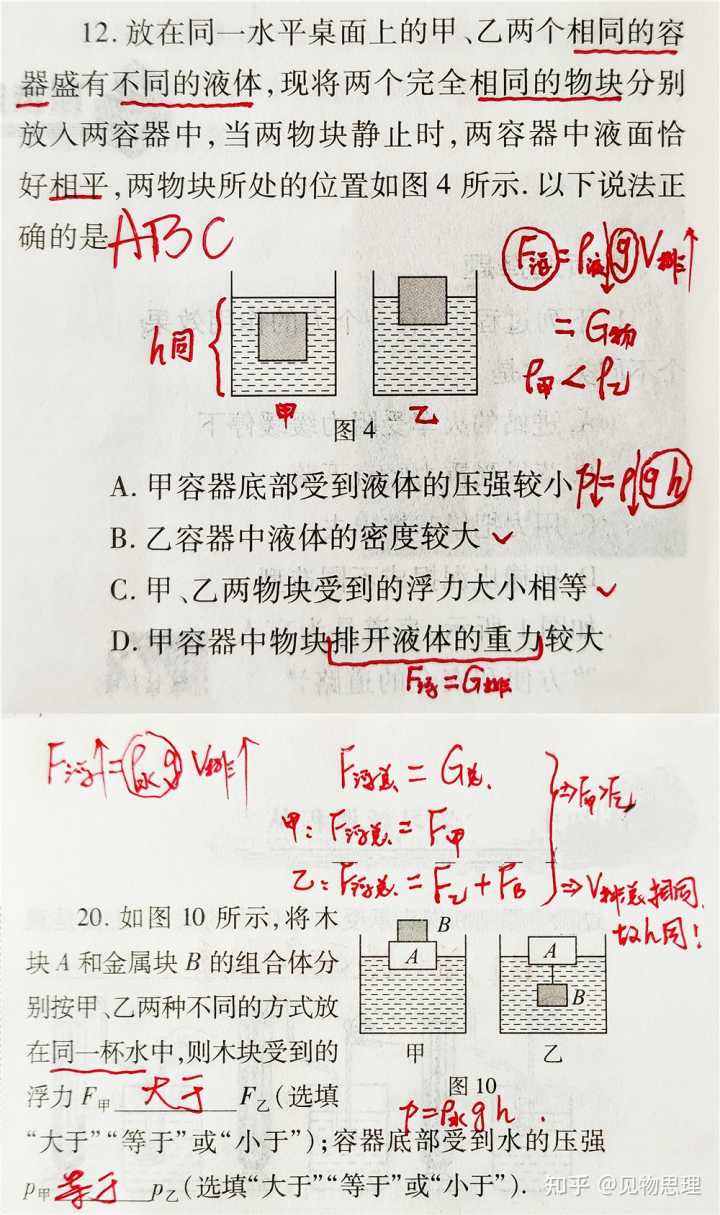 12. 放在同一水平桌面上的甲、乙两个相同的容
器盛有不同的液体,现将两个完全相同的物块分别
放入两容器中,当两物块静止时,两容器中液面恰
好相平,两物块所处的位置如图4所示. 以下说法正
确的是 ABC
F浮=ρ液gV排↑
=G物
ρ甲<ρ乙
h同
甲
乙
图4
A. 甲容器底部受到液体的压强较小 p↓=ρ↓gh
B. 乙容器中液体的密度较大 ✓
C. 甲、乙两物块受到的浮力大小相等 ✓
D. 甲容器中物块排开液体的重力较大
F浮=G排
F浮↑=ρ水gV排↑
F浮总=G总
甲:F浮总=F甲
⇒F甲>F乙
乙:F浮总=F乙+FB
⇒V排总相同,
故h同!
20. 如图10所示,将木
块A和金属块B的组合体分
别按甲、乙两种不同的方式放
在同一杯水中,则木块受到的
浮力F甲 大于 F乙(选填
B
A
A
B
甲
乙
图10
p=ρ水gh.
“大于”“等于”或“小于”);容器底部受到水的压强
p甲 等于 p乙(选填“大于”“等于”或“小于”).
知乎 @见物思理